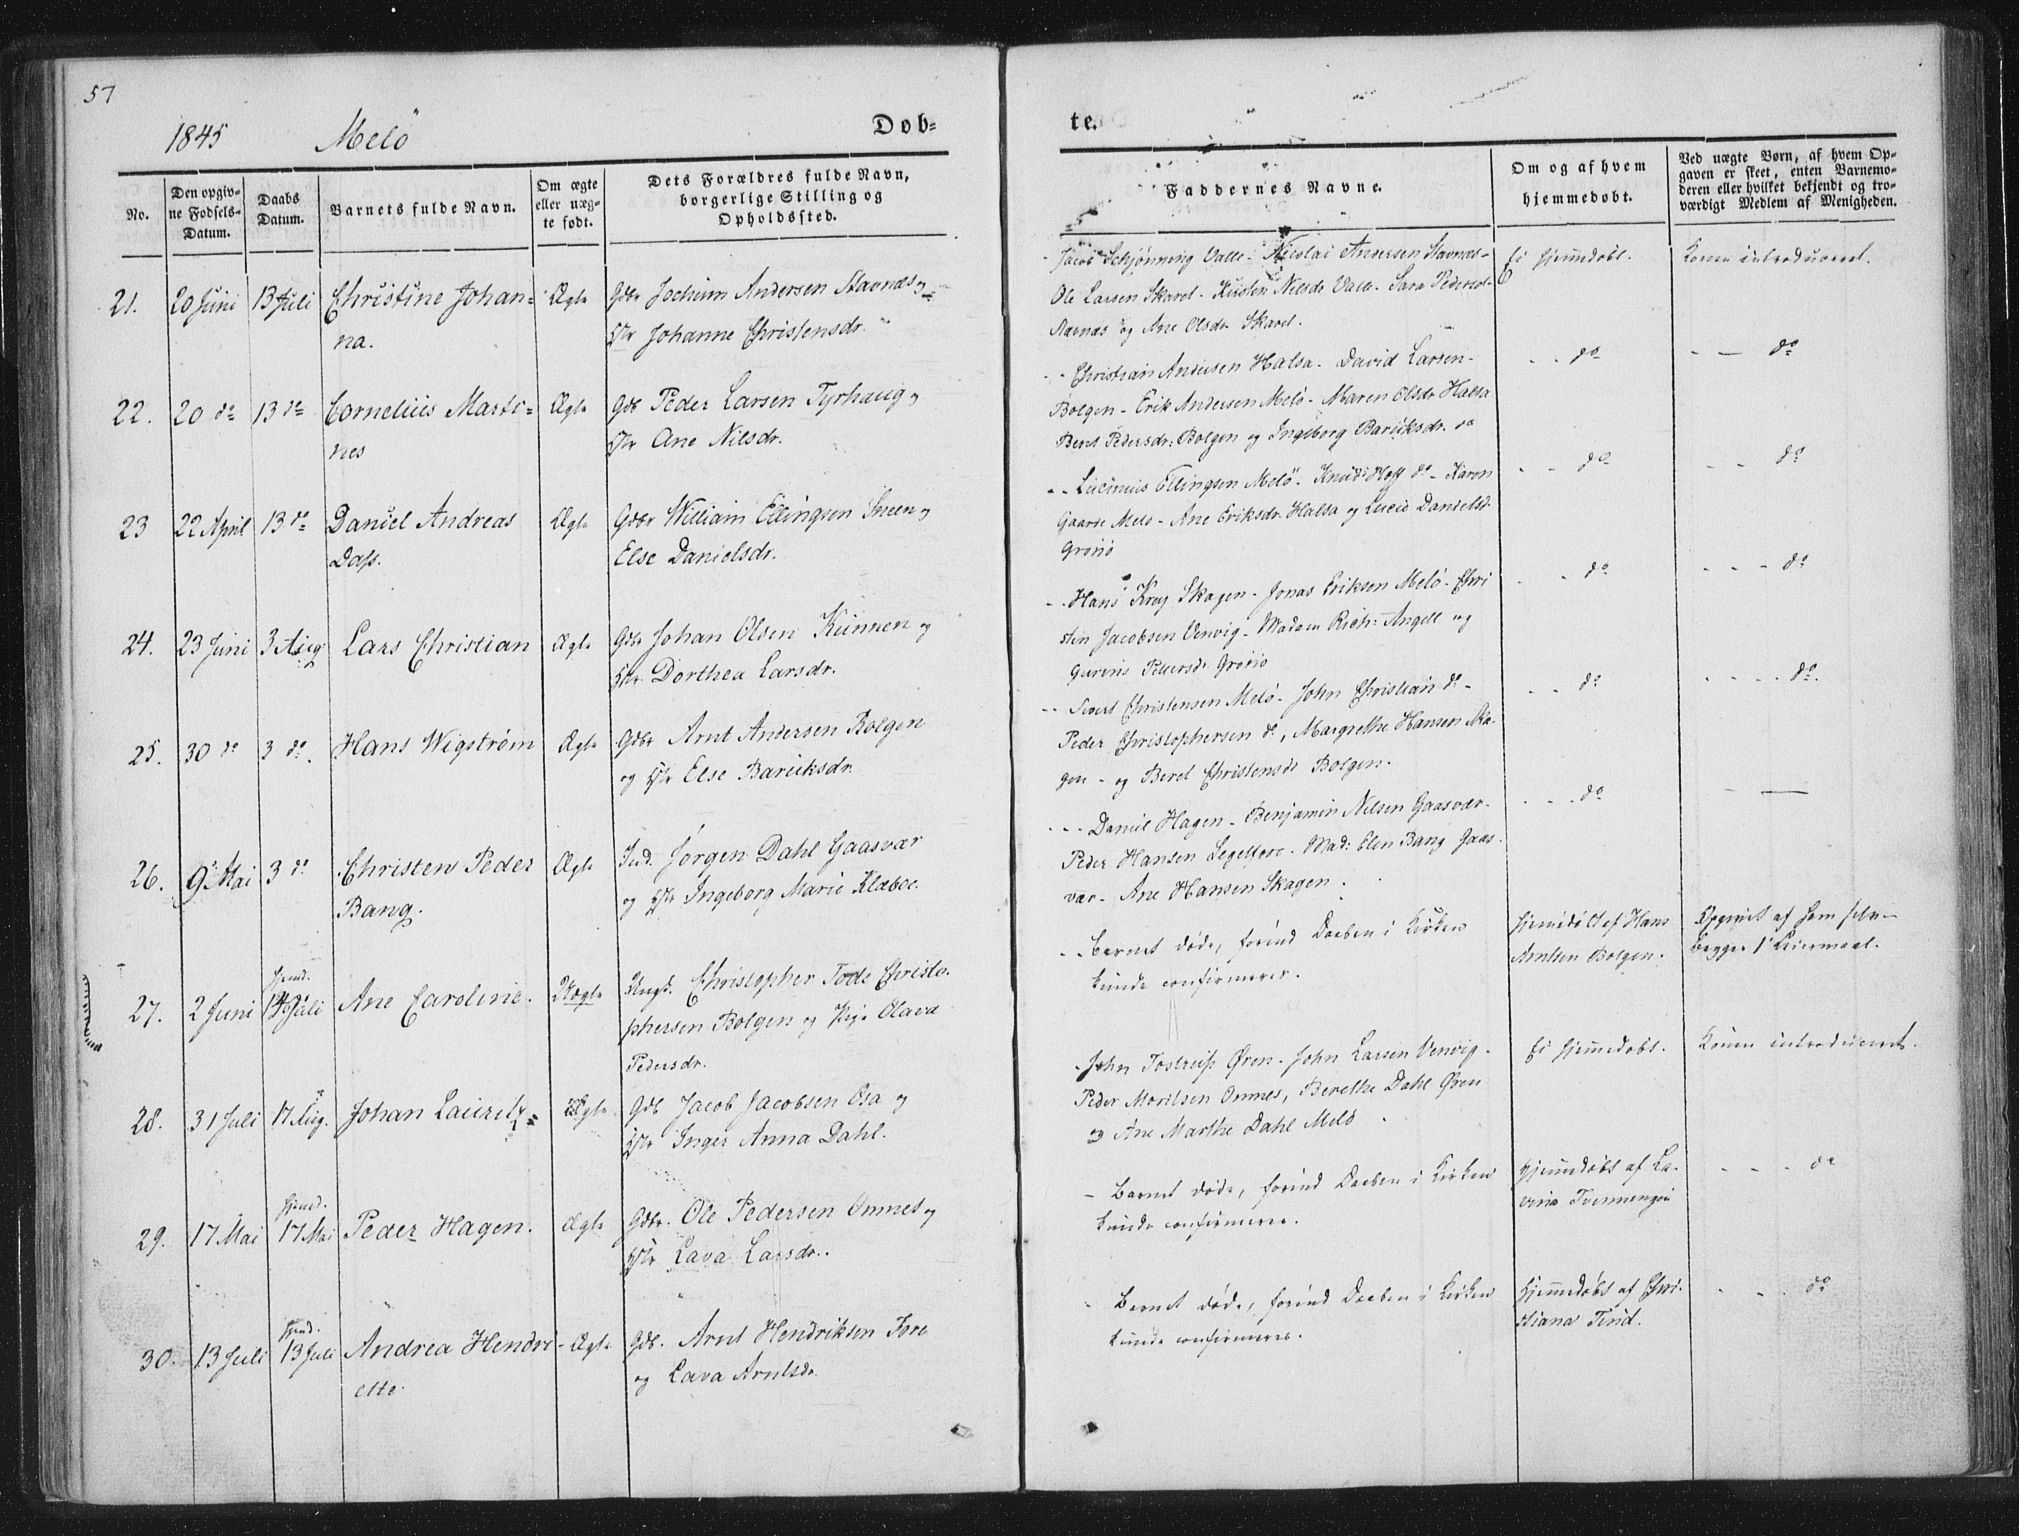 57
1845 Melö Døb-
te.
No.
Den opgiv-
ne Fødsels-
Datum.
Daabs
Datum.
Barnets fulde Navn.
Om ægte
eller uæg-
te født.
Dets Forældres fulde Navn,
borgerlige Stilling og
Opholdssted.
Faddernes Navne.
Om og af hvem
hjemmedøbt.
Ved uægte Børn, af hvem Op-
gaven er skeet, enten Barnemo-
deren eller hvilket bekjendt og tro-
værdigt Medlem af Menigheden.
21. 20 Juni 13 Juli Christine Johan- Ægte Gdbr Jochum Andersen Stavnes og
na. Hr Johanne Christensdr.
Jacob Schjönning Valle. Nicolai Andersen Stavnes-
Ole Larsen Skavel. Kirsten Nilsdr Valle. Sara Pedersdr
Stavnes og Ane Olsdr Skavel.
Ei hjemdøbt. Konen introduceret.
22. 20 do 13 do Cornelius Marti- Ægte Gdb Peder Larsen Tyrhaug og
nes Hr Ane Nilsdr.
Christian Andersen Halsa. David Larsen
Bolgen - Erik Andersen Melö - Maren Olsdr Halsa
Beret Pedersdr: Bolgen og Ingeborg Baruksdr. do
do do
23 22 April 13 do Daniel Andreas Ægte Gdbr William Ellingsen Steen og
Dass. Else Danielsdr.
Lucinius Ellingsen Melö. Knud Hoff do - Karen
Gaarde Melö - Ane Eriksdr Halsa og Lucie Danielsd.
Grönö
do do
24. 23 Juni 3 Aug Lars Christian Ægte Gdb Johan Olsen Kunnen og
Hr. Dorthea Larsdr.
Hans Krog Skagen. Jonas Eriksen Melö. Chri
sten Jacobsen Venvig. Madam Rich: Angell og
Grönö
do do
25. 30 do 3 do. Hans Wigström Ægte Gdbr Arnt Andersen Bolgen
og Hr Else Baruksdr.
Sivert Christensen Melö. John Christian do -
Peder Christophersen do, Margrethe Hansen Ska-
gen - og Beret Christensdr Bolgen.
do do.
26. 9 Mai 3 do Christen Peder Ægte Ind. Jörgen Dahl Gaasvær
Bang. og Hr Ingeborg Marie Klæboe.
Daniel Hagen - Benjamin Nilsen Gaasvær.
Peder Hansen Segelfore. Mad: Elen Bang Gaas-
vær - Ane Hansen Skagen.
do —
27. 2 Juni hjemd. 14 Juli Ane Caroline. Uægte Ungk. Christopher Tode Christo-
phersen Bolgen og Pige Olava
Pedersdr.
Barnet døde, forind Daaben i Kirken
kunde confirmeres.
hjemdøbt af Hans
Arntsen Bolgen.
Opgivet af dem selv
Begges 1' Leiermaal.
28. 31 Juli 17 Aug. Johan Lauretz Ægte Gdb Jacob Jacobsen Osa og
Hr Inger Anna Dahl.
John Tostrup Øren. John Larsen Venvig.
Peder Moritsen Onnes, Berethe Dahl Øren
og Ane Marthe Dahl Melö
Ei hjemmedøbt. Konen introduceret.
29. 17 Mai hjemd. 17 Mai Peder Hagen. Ægte Gdbr. Ole Pedersen Onnes og
Hr Lava Larsdr.
Barnet døde, forind Daaben i Kirken
kunde confirmeres.
hjemdøbt af La-
vina Tvermengen
do
30. 13 Juli hjemd. 13 Juli Andrea Hendri- Ægte Gdb. Arnt Hendriksen Fore
ette og Lava Arntsdr.
Barnet døde, forind Daaben i Kirken
kunde confirmeres.
hjemmedøbt af Chri-
stiana Tind.
do